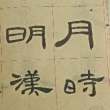 明月
漢時